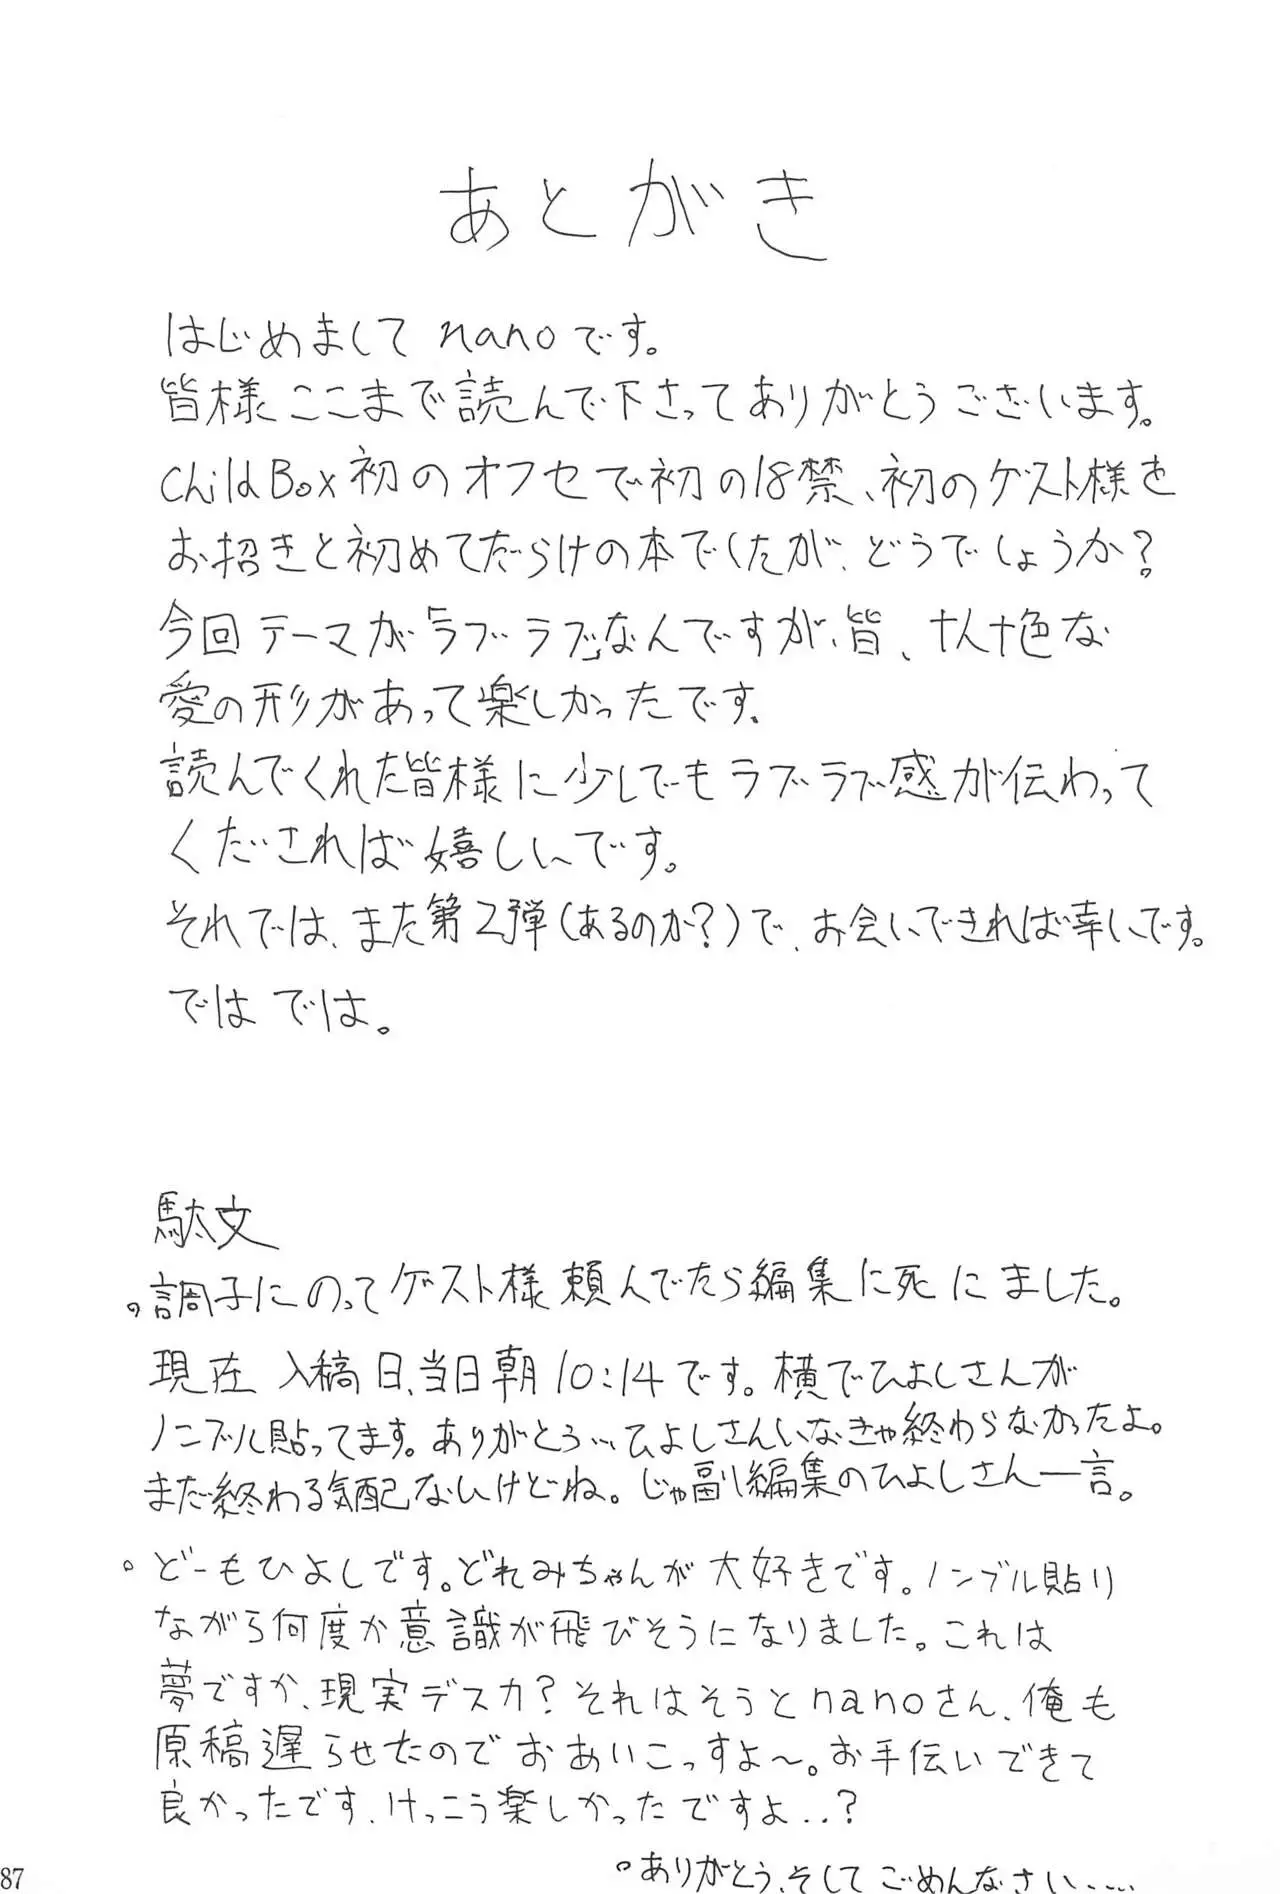 あとがき
はじめまして nanoです。
皆様ここまで読んで下さってありがとうございます。
Child Box 初のオフセで初の18禁、初のゲスト様を
お招きと初めてだらけの本でしたが、どうでしょうか?
今回テーマが「ラブラブ」なんですが、皆、十人十色な
愛の形があって楽しかったです。
読んでくれた皆様に少しでもラブラブ感が伝わって
くだされば嬉しいです。
それでは、また第2弾(あるのか?)で、お会いできれば幸いです。
ではでは。
駄文
。調子にのってゲスト様頼んでたら編集に死にました。
現在 入稿日、当日朝10:14です。横でひよしさんが
ノンブル貼ってます。ありがとう…ひよしさんいなきゃ終わらなかったよ。
まだ終わる気配ないけどね。じゃ副編集のひよしさん一言。
。どーもひよしです。どれみちゃんが大好きです。ノンブル貼り
ながら何度か意識が飛びそうになりました。これは
夢ですか、現実デスカ?それはそうとnanoさん、俺も
原稿遅らせたのでおあいこっすよ〜。お手伝いできて
良かったです、けっこう楽しかったですよ...?
。ありがとう、そしてごめんなさい.....
87